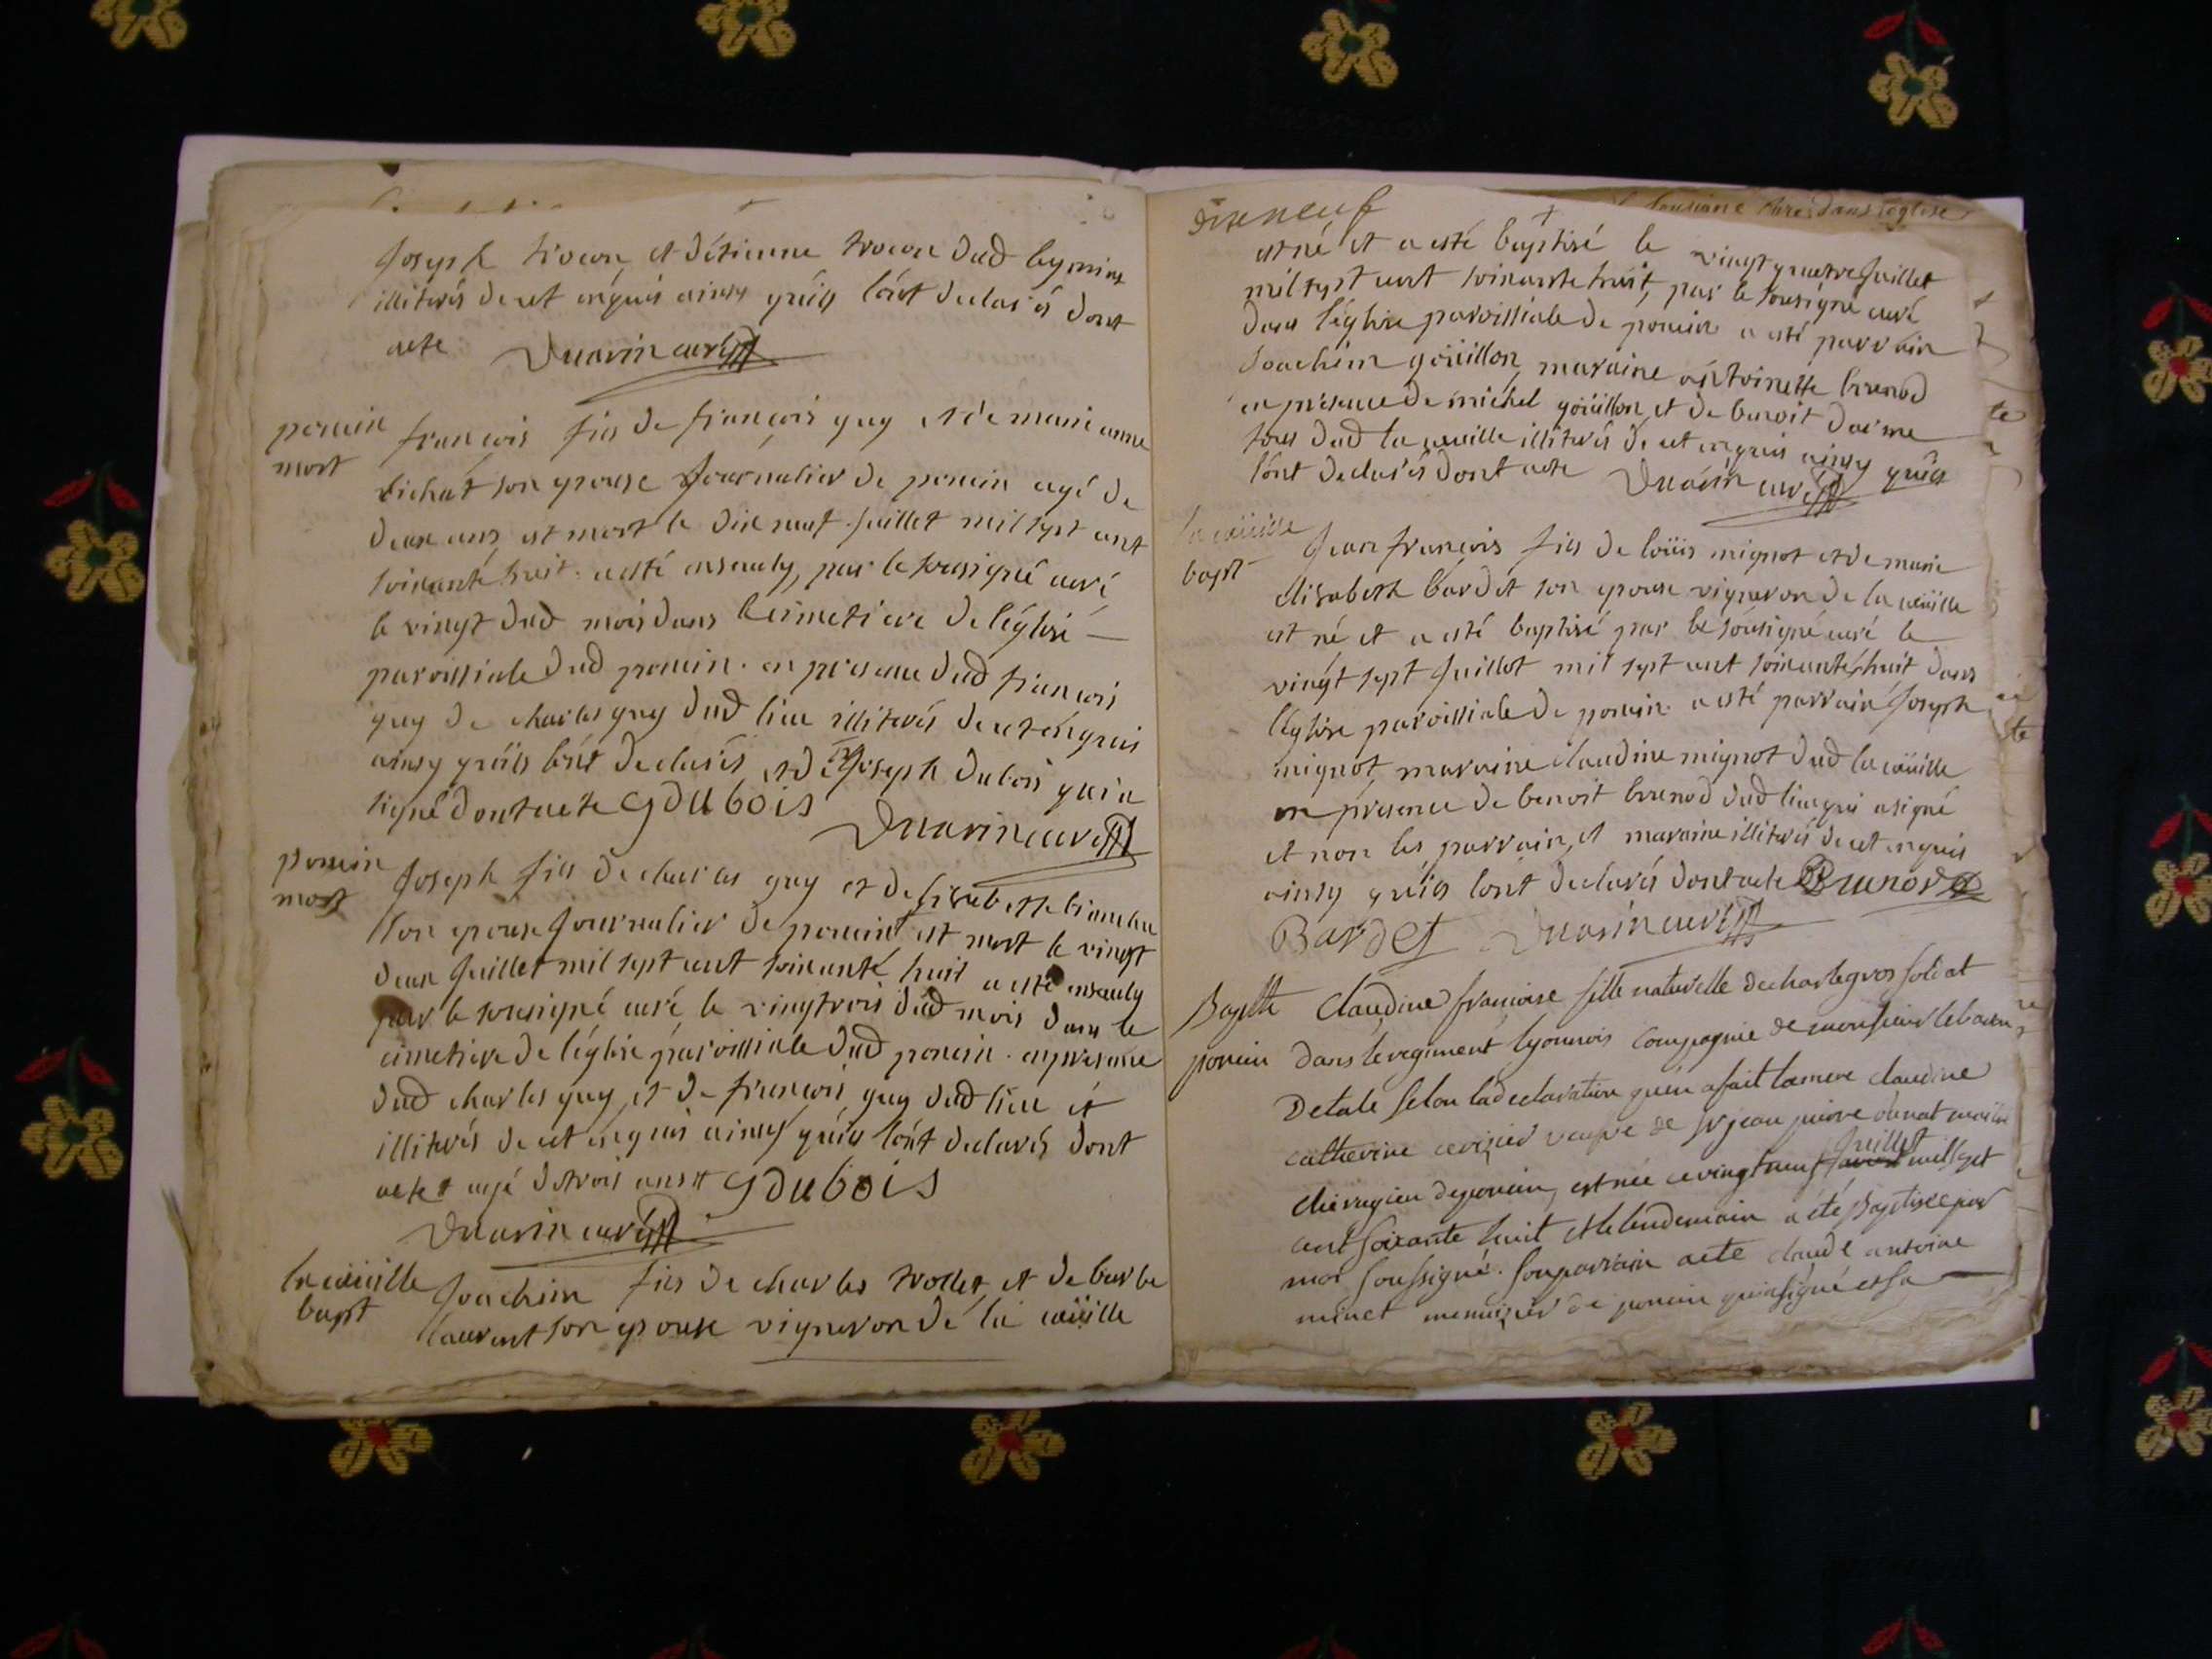 Joseph trocon et d'étienne trocon dud leymiat
illiterés de cet enquis ainsy qu'ils l'ont declarés dont
acte Duarin curé
poncin
mort
françois fils de françois guy et de marie anne
bichat son epouse Journalier de poncin agé de
deux ans est mort le dix neuf Juillet mil sept cent
soixante huit a esté ensevely par le sousigné curé
le vingt dud mois dans le cimetiere de l'église
paroissiale dud poncin en presence dud françois
guy de charles guy dud lieu illiterés de cet enquis
ainsy qu'ils l'ont declarés et de Joseph dubois qui a
signé dont acte GDubois
Duarin curé
poncin
mort
Joseph fils de charles guy et de Elisabette
son epouse Journalier de poncin est mort le vingt
deux Juillet mil sept cent soixante huit a esté ensevely
par le sousigné curé le vingtrois dud mois dans le
cimetiere de l'église paroissiale dud poncin en presence
dud charles guy et de françois guy dud lieu et
illiterés de cet enquis ainsy qu'ils l'ont declarés dont
acte agé de trois ans GDubois
Duarin curé
la coüille
bapt
Joachim fils de charles trollet et de barbe
laurent son epouse vigneron de la coüille
dixneuf
dans léglise
est né et a esté baptisé le vingt quatre Juillet
mil sept cent soixante huit par le sousigné curé
dans l'église paroissiale de poncin a esté parrain
Joachim goüillon maraine antoinette brunod
en présence de michel goüillon et de benoit
tous dud la coüille illiterés de cet enquis ainsy qu'ils
l'ont declarés dont acte Duarin curé
la coüille
bapt
Jean françois fils de loüis mignot et de marie
elisabeth bardet son epouse vigneron de la coüille
est né et a esté baptisé par le sousigné curé le
vingt sept Juillet mil sept cent soixante huit dans
l'église paroissiale de poncin a esté parrain Joseph
mignot maraine claudine mignot dud la coüille
en présence de benoit brunod dud lieu qui a signé
et non les parrain et maraine illiterés de cet enquis
ainsy qu'ils l'ont declarés dont acte Brunod
Bardet Duarin curé
Baptte
poncin
Claudine françoise fille naturelle de charle gros soldat
dans le regiment lyonnois compagnie de monsieur le baron
Detale selon la declaration qu'en a fait la mere claudine
catherine cerisier veuve de sr jean pierre maitre
chirurgien de poncin, est née ce vingt neuf Juillet mil sept
cent soixante huit et le lendemain a été Baptisée par
moi soussigné. son parrain a ete claude antoine
minet menuisier de poncin qui a signé et sa